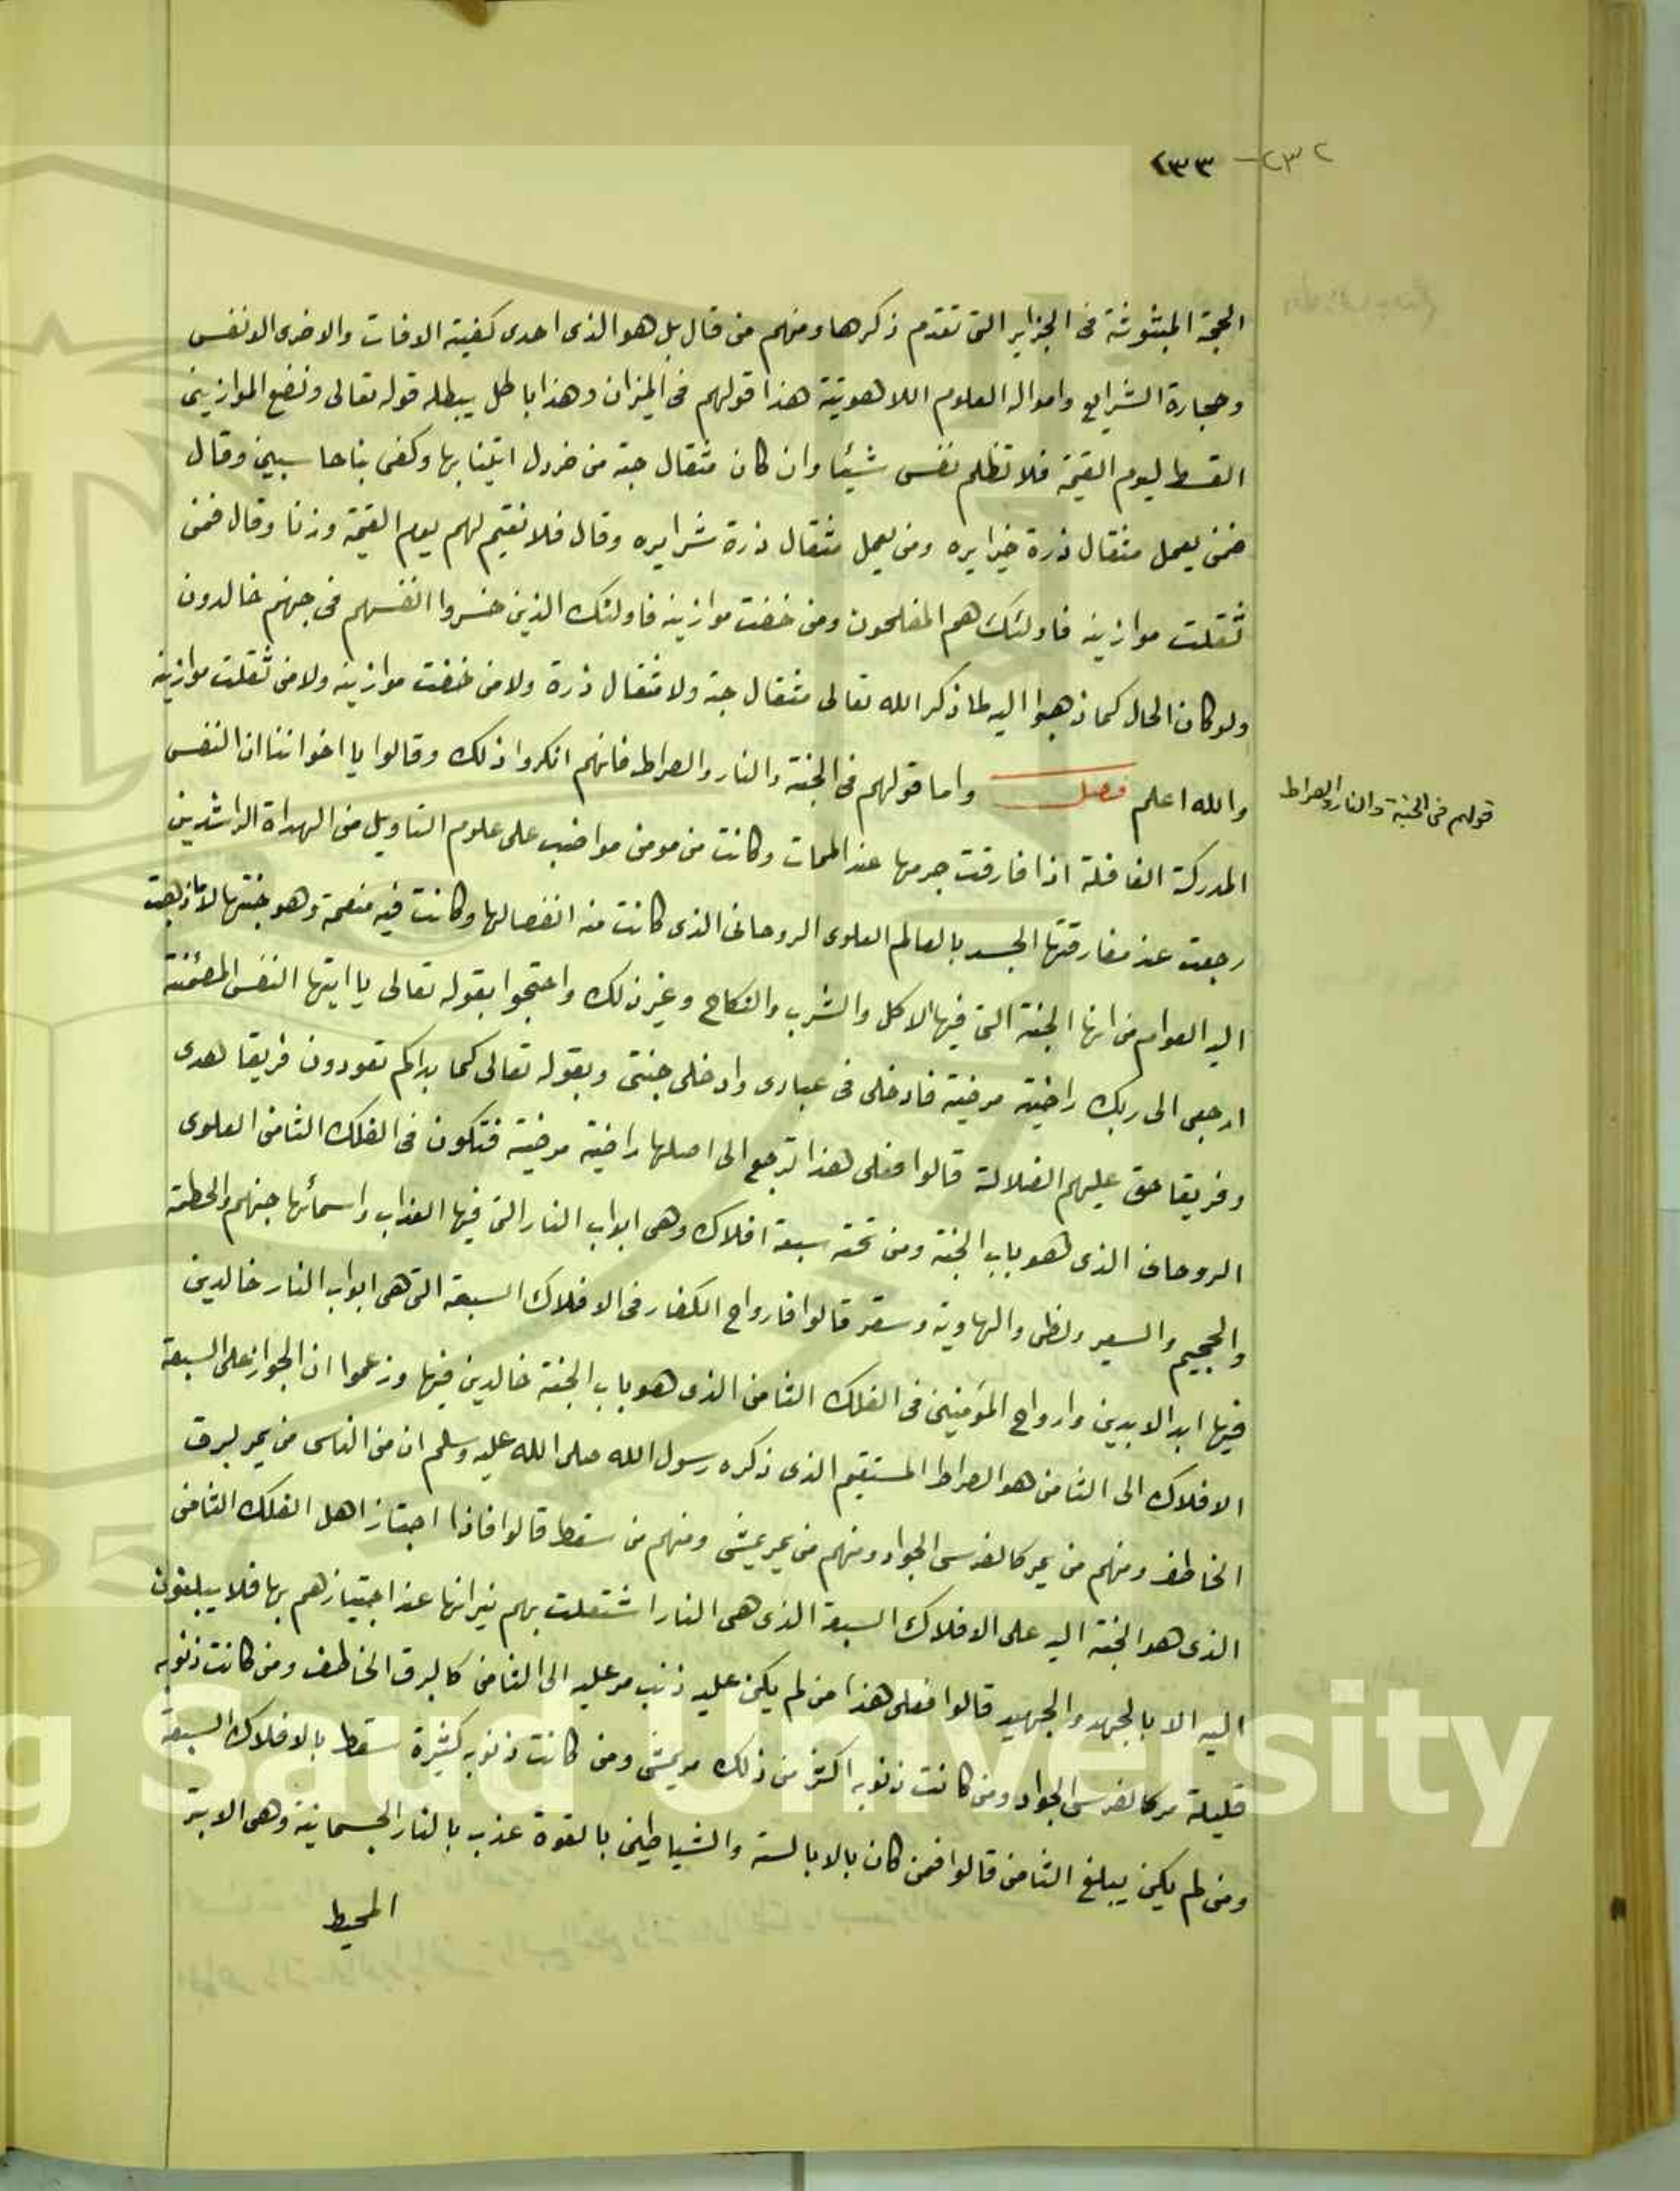 ٢٣٢ - ٢٣٣
الحجة المبثوثة فى الجزاير التى تقدم ذكرها ومنهم من قال بل هو الذى احدى كفيته الافات والاخرى الانفس
وحجارة الشرايع وامواله العلوم اللاهوتية هذا قولهم فى الميزان وهذا باطل يبطله قوله تعالى ونضع الموازين
القسط ليوم القيمة فلا تظلم نفس شيئا وان كان مثقال حبة من خردل اتينا بها وكفى بنا حاسبين وقال
فمن يعمل مثقال ذرة خيرا يره ومن يعمل مثقال ذرة شرا يره وقال فلا نقيم لهم يوم القيمة وزنا وقال فمن
ثقلت موازينه فاولئك هم المفلحون ومن خفت موازينه فاولئك الذين خسروا انفسهم فى جهنم خالدون
ولو كان الحال كما ذهبوا اليه لما ذكر الله تعالى مثقال حبة ولا مثقال ذرة ولا من خفت موازينه ولا من ثقلت موازينه
والله اعلم فصل واما قولهم فى الجنة والنار والصراط فانهم انكروا ذلك وقالوا يا اخواننا ان النفس
قولهم فى الجنة والنار والصراط
المدركة الفاضلة اذا فارقت جرمها عند الممات وكانت من مومن مواضب على علوم التاويل من الهداة الراشدين
رجعت عند مفارقتها الجسد بالعالم العلوى الروحانى الذى كانت منه انفصالها وكانت فيه منعمة وهو جنتها لا ما ذهبت
اليه العوام من انها الجنة التى فيها الاكل والشرب والنكاح وغير ذلك واحتجوا بقوله تعالى يا ايتها النفس المطمئنة
ارجعى الى ربك راضية مرضية فادخلى فى عبادى وادخلى جنتى وبقوله تعالى كما بداكم تعودون فريقا هدى
وفريقا حق عليهم الضلالة قالوا فعلى هذا ترجع الى اصلها راضية مرضية فتكون فى الفلك الثامن العلوى
الروحانى الذى هو باب الجنة ومن تحته سبعة افلاك وهى ابواب النار التى فيها العذاب واسمائها جهنم والحطمة
والجحيم والسعير ولظى والهاوية وسقر قالوا فارواح الكفار فى الافلاك السبعة التى هى ابواب النار خالدين
فيها ابد الابدين وارواح المؤمنين فى الفلك الثامن الذى هو باب الجنة خالدين فيها وزعموا ان الجواز على السبعة
الافلاك الى الثامن هو الصراط المستقيم الذى ذكره رسول الله صلى الله عليه وسلم ان من الناس من يمر لبرق
الخاطف ومنهم من يمر كالفرس الجواد ومنهم من يمر يمشى ومنهم من سقط قالوا فاذا اجتاز اهل الفلك الثامن
الذى هو الجنة اليه على الافلاك السبعة الذى هى النار اشتعلت بهم نيرانها عند اجتيازهم بها فلا يبلغون
اليه الا بالجهد والجهيد قالوا فعلى هذا من لم يكن عليه ذنب مر عليه الى الثامن كالبرق الخاطف ومن كانت ذنوبه
قليلة مر كالفرس الجواد ومن كانت ذنوبه اكثر من ذلك مر يمشى ومن كانت ذنوبه كثيرة سقط بالافلاك السبعة
ومن لم يكن يبلغ الثامن قالوا فمن كان بالابالسة والشياطين بالقوة عذب بالنار الجسمانية وهى الابتر
المحيط
g Saud University